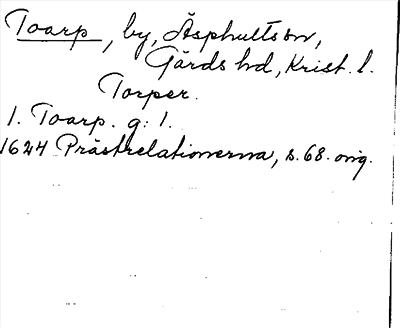 Toarp, by, Äsphults sn,
Gärds hd, Krist. l.
Torper.
1. Toarp. g: 1.
1624 Prästrelationerna, s. 68. orig.